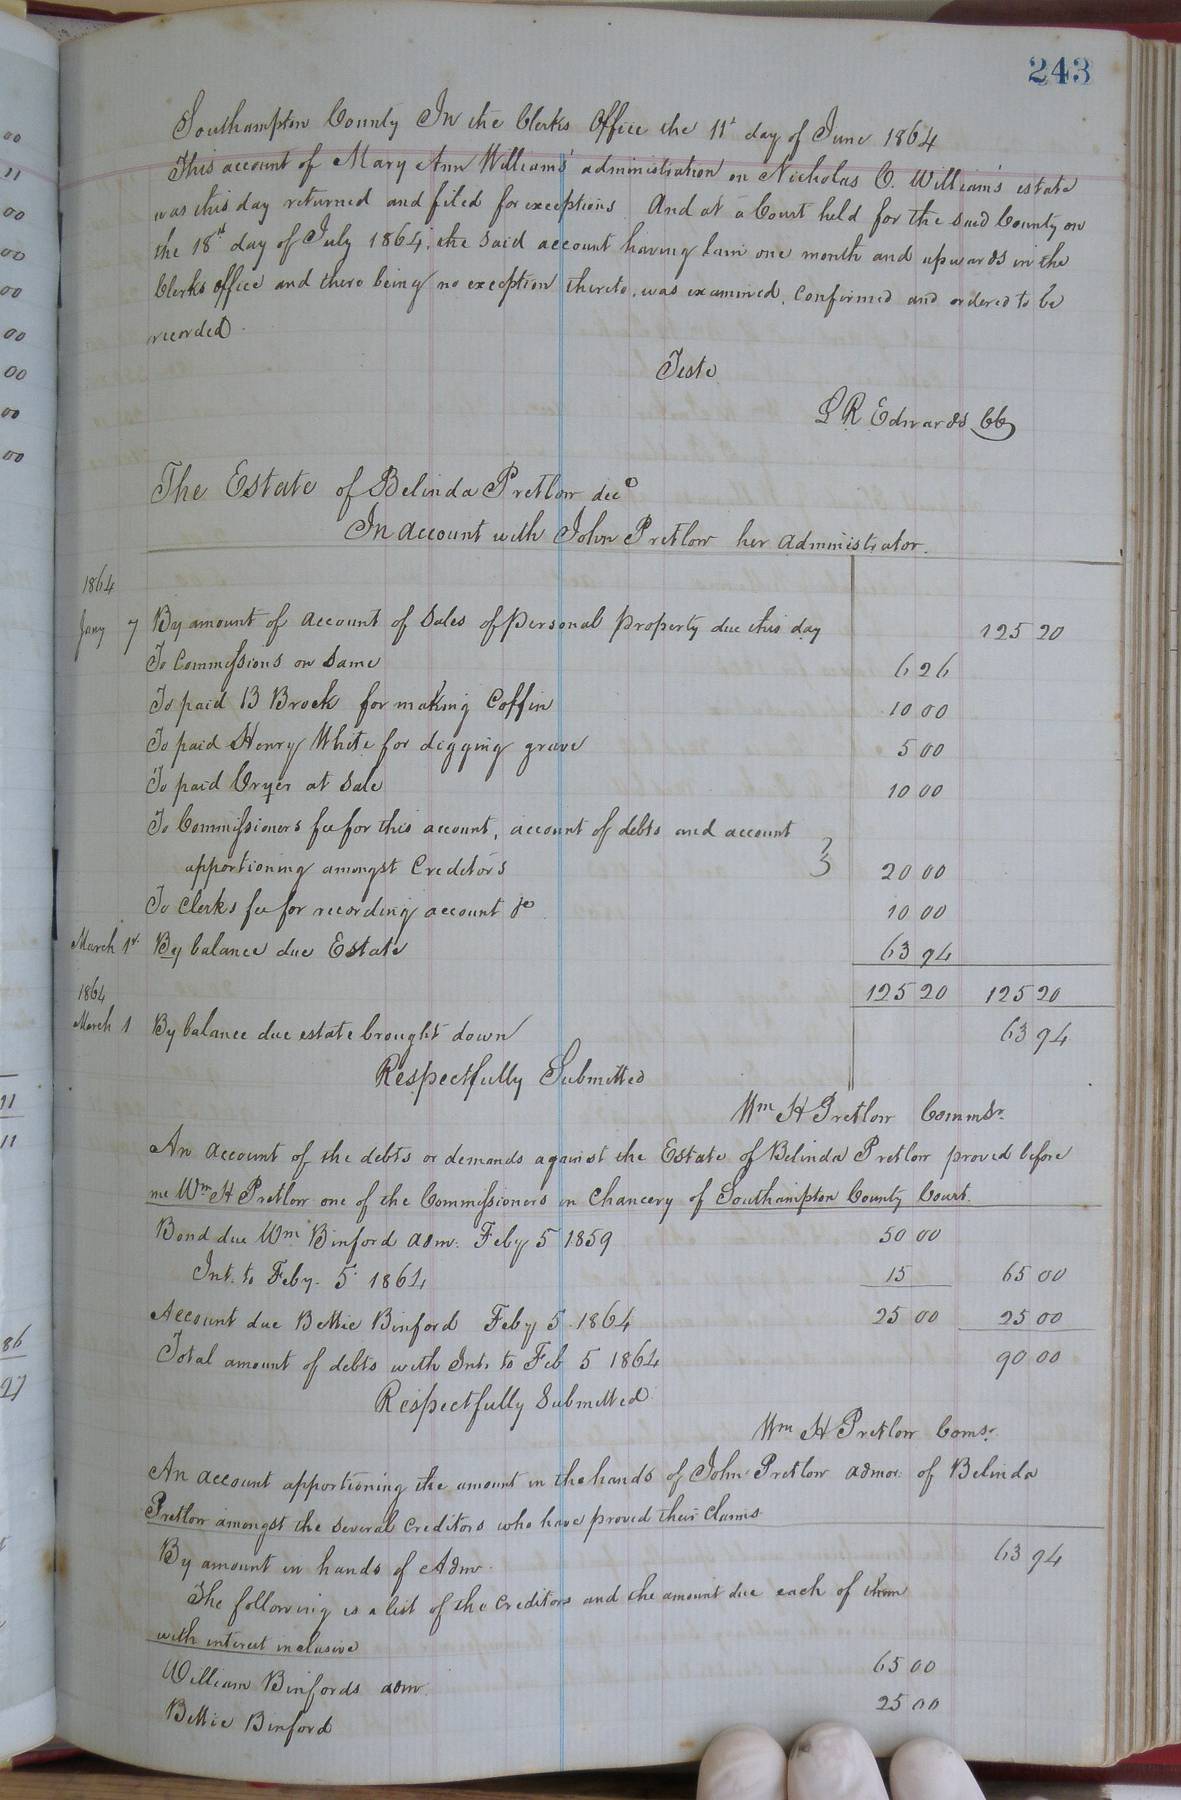 243
Southampton County In the Clerks Office the 11th day of June 1864
This account of Mary Ann Williams' administration on Nicholas O. William's estate
was this day returned and filed for exceptions And at a Court held for the said County on
the 18th day of July 1864, the said account having lain one month and upwards in the
Clerks office and there being no exception thereto, was examined, confirmed and ordered to be
recorded.
Teste
L R Edwards CC
The Estate of Belinda Pretlow decd
In account with John Pretlow her administrator.
1864
Jany 7 By amount of account of sales of personal property due this day 125 20
To Commissions on same 6 26
To paid B Brock for making Coffin 10 00
To paid Henry White for digging grave 5 00
To paid Cryer at sale 10 00
To Commissioners fee for this account, account of debts and account
apportioning amongst Creditors 20 00
To Clerks fee for recording account &c 10 00
March 1st By balance due Estate 63 94
1864 125 20 125 20
March 1 By balance due estate brought down 63 94
Respectfully Submitted
Wm H Pretlow Commsr.
An account of the debts or demands against the Estate of Belinda Pretlow proved before
me Wm H Pretlow one of the Commissioners in Chancery of Southampton County Court.
Bond due Wm Binford adm. Feby 5 1859 50 00
Int. to Feby. 5 1864 15 65 00
Account due Bettie Binford Feby 5 1864 25 00 25 00
Total amount of debts with Int. to Feb 5 1864 90 00
Respectfully Submitted
Wm H Pretlow Comsr.
An account apportioning the amount in the hands of John Pretlow admor. of Belinda
Pretlow amongst the several creditors who have proved their claims
By amount in hands of Adm. 63 94
The following is a list of the creditors and the amount due each of them
with interest inclusive
William Binfords adm. 65 00
Bettie Binford 25 00